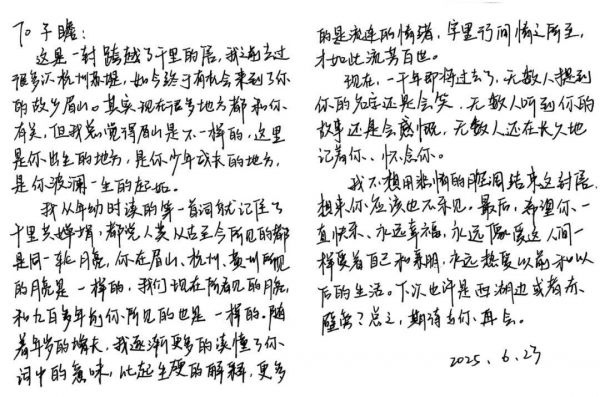 To 子瞻：
这是一封跨越了千里的信，我之前去过
很多次杭州苏堤，如今终于有机会来到了你
的故乡眉山。其实现在很多地方都和你
有关，但我总觉得眉山是不一样的，这里
是你出生的地方，是你少年成长的地方，
是你波澜一生的起始。
我从年幼时读的第一首词就记住了
千里共婵娟，都说人类从古至今所见的都
是同一轮月亮，你在眉山、杭州、黄州所见
的月亮是一样的，我们现在所看见的月亮
和九百多年前你所见的也是一样的。随
着年岁的增长，我逐渐更多的读懂了你
词中的意味，比起生硬的解释，更多
的是流连的情绪，字里行间情之所至，
才如此流芳百世。
现在，一千年即将过去了，无数人提到
你的名字还是会笑，无数人听到你的
故事还是会感慨，无数人还在长久地
记着你、怀念你。
我不想用悲情的腔调结束这封信，
想来你应该也不乐见。最后，希望你一
直快乐、永远幸福，永远像爱这人间一
样爱着自己和亲朋，永远热爱以前和以
后的生活。下次也许是西湖边或者赤
壁旁？总之，期待与你再会。
2025.6.23